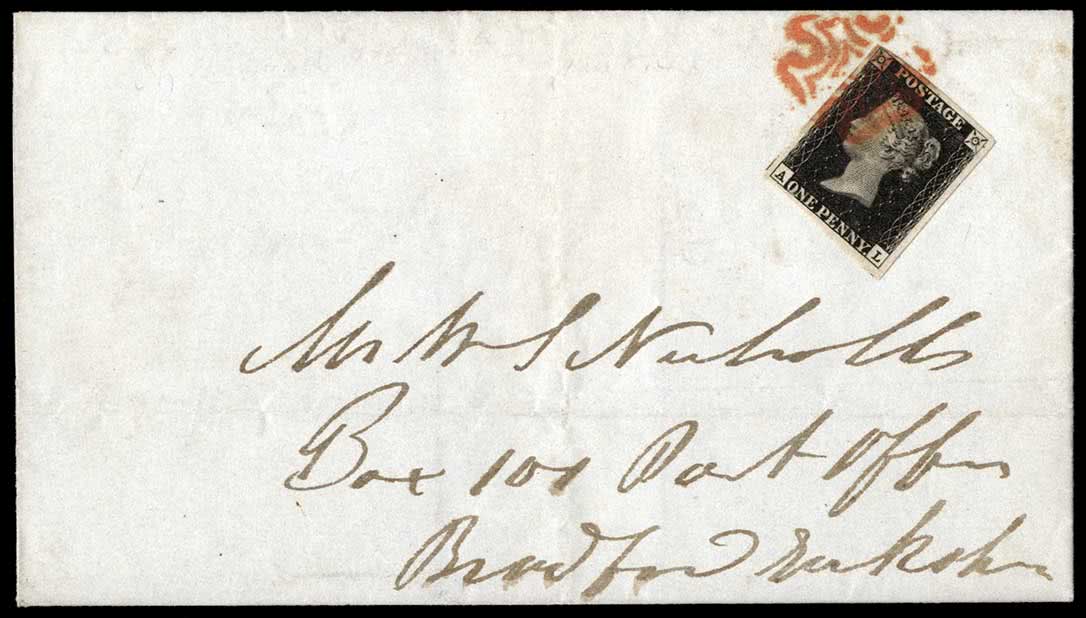 POSTAGE
A ONE PENNY. L
Mr W S Nicholls
Box 101 Post Office
Bradford Yorkshire